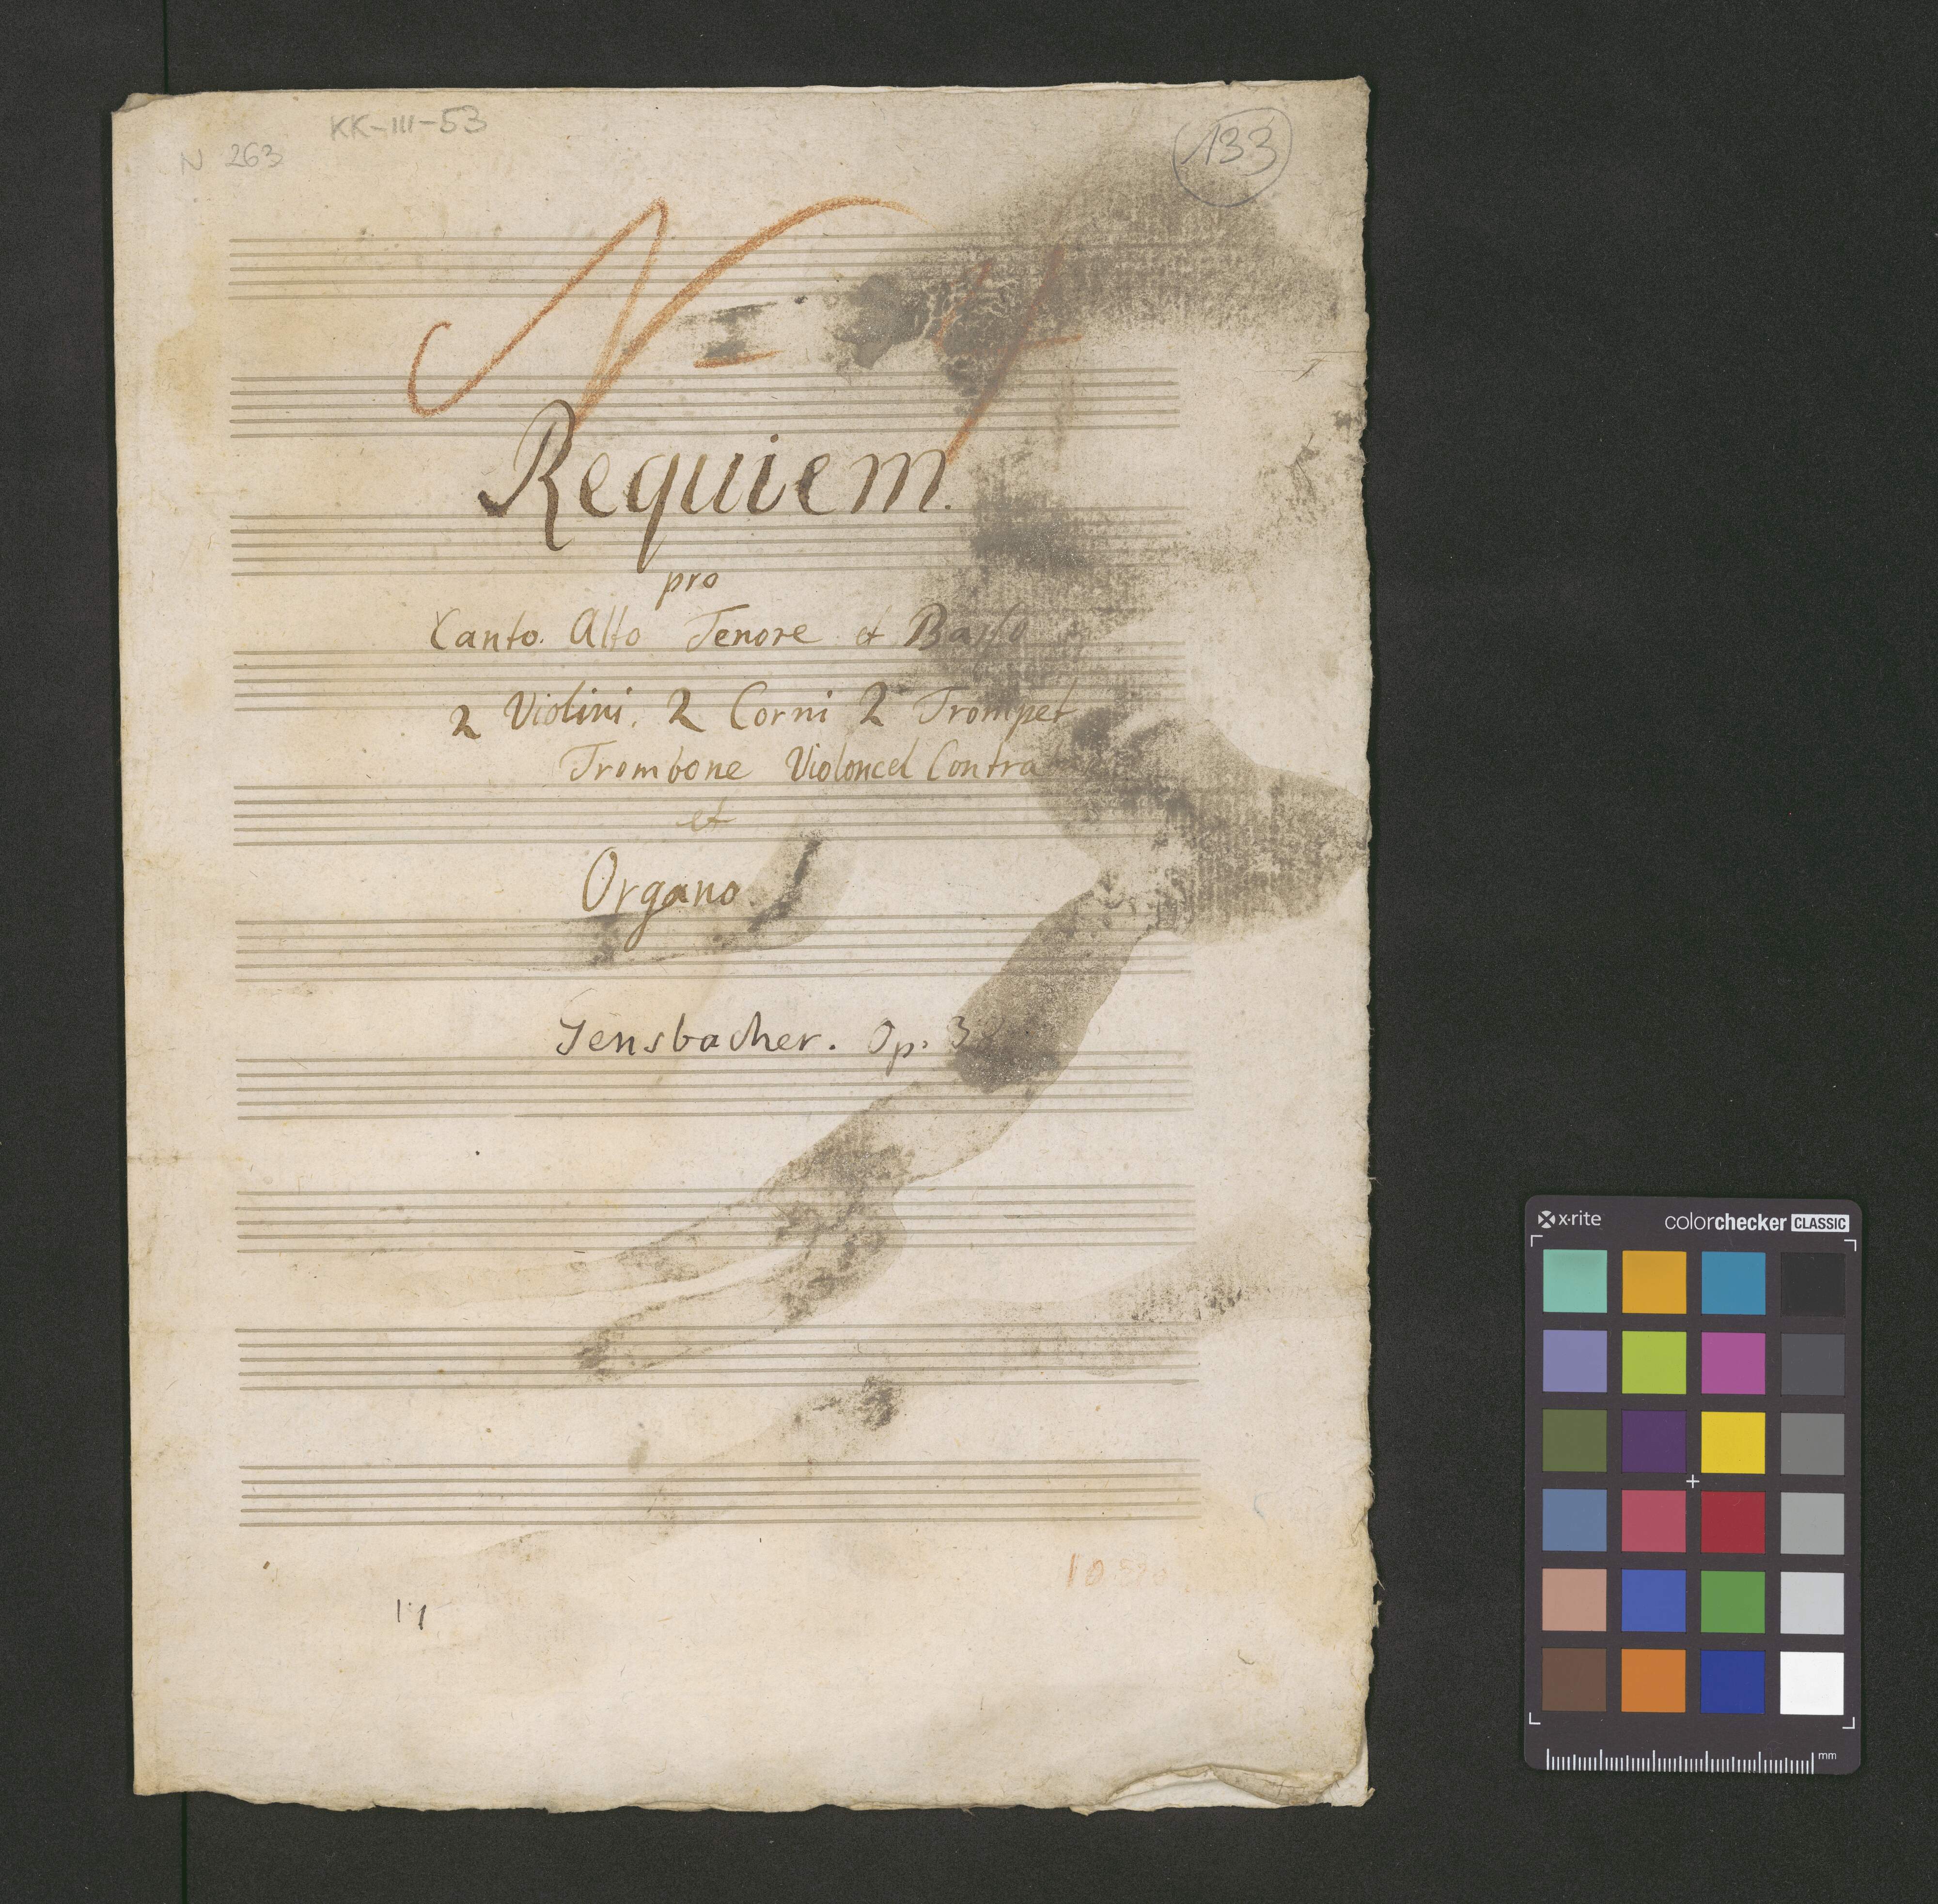 KK-III-53
N 263
133
N 4
Requiem.
pro
Canto. Alto Tenore et Basso
2 Violini. 2 Corni 2 Trompet
Trombone Violoncel Contra
et
Organo.
Gensbacher. Op: 38
10
x·rite colorchecker CLASSIC
mm